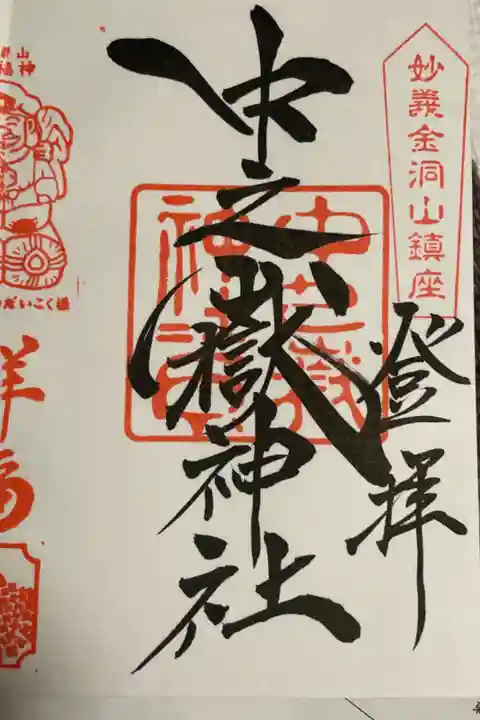 妙義金洞山鎮座
登拝
中之嶽神社
中之嶽
神社
山神
だいこく様
祥福